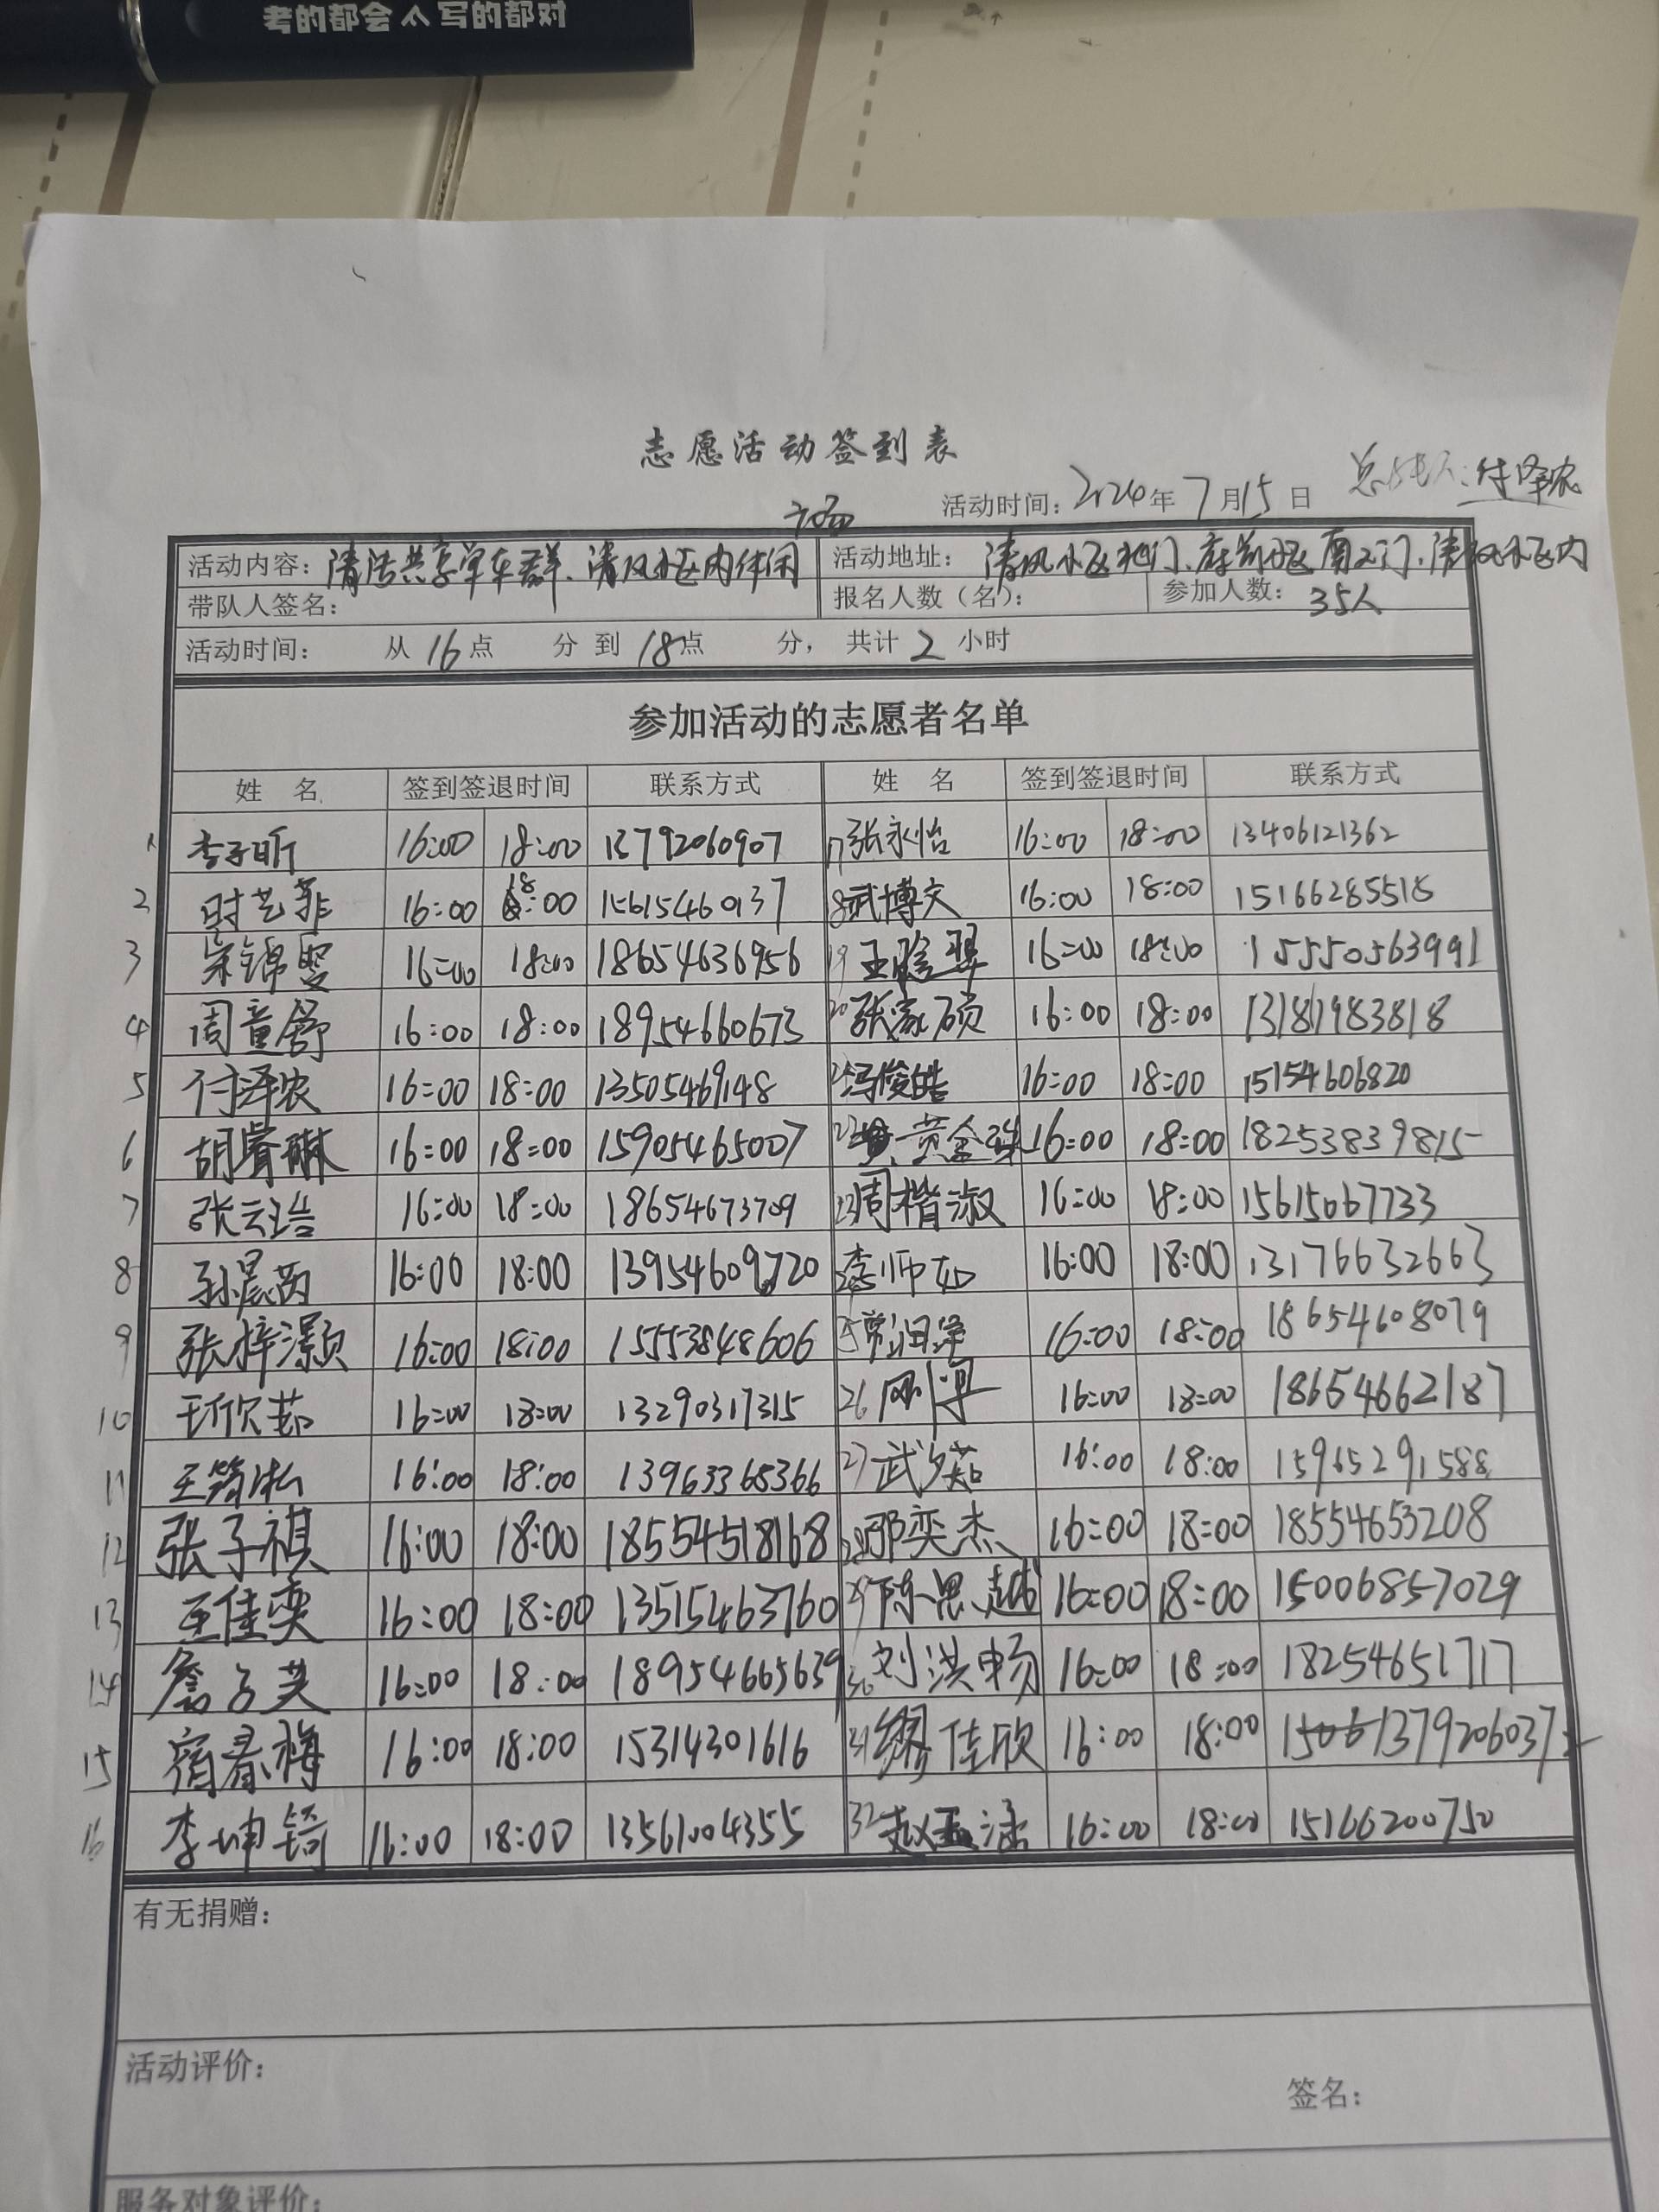 考的都会 人写的都对
志愿活动签到表
活动时间：2024年7月15日 付泽农
活动内容：清洁共享单车群、清风小区内休闲 活动地址：清风小区北门、府前小区南门、清风小区内
带队人签名： 报名人数（名）： 参加人数：35人
活动时间： 从16点 分到18点 分，共计2小时
参加活动的志愿者名单
姓 名 签到签退时间 联系方式 姓 名 签到签退时间 联系方式
1 李子昕 16:00 18:00 13792060907 17 张永怡 16:00 18:00 13406121362
2 时艺菲 16:00 18:00 15615460137 18 武博文 16:00 18:00 15166285515
3 宋锦雯 16:00 18:00 18654636956 19 王晗翠 16:00 18:00 15550563991
4 周童舒 16:00 18:00 18954660673 20 张家硕 16:00 18:00 13181983818
5 付泽农 16:00 18:00 13505469148 冯俊皓 16:00 18:00 15154606820
6 胡睿琳 16:00 18:00 15905465007 22 黄金珠 16:00 18:00 18253839815
7 张云皓 16:00 18:00 18654673709 23 周楷淑 16:00 18:00 15615067733
8 孙晨茜 16:00 18:00 13954609720 李师如 16:00 18:00 13176632663
9 张梓灏 16:00 18:00 15553848606 25 常润泽 16:00 18:00 18654608079
10 王欣茹 16:00 18:00 13290317315 26 16:00 18:00 18654662187
11 王筠 16:00 18:00 13963365366 27 武夕茹 16:00 18:00 15965291588
12 张子祺 16:00 18:00 18554518168 28 邵奕杰 16:00 18:00 18554653208
13 王佳奕 16:00 18:00 13515463760 29 陈思越 16:00 18:00 15006857029
14 詹子芙 16:00 18:00 18954665639 30 刘洪畅 16:00 18:00 18254651717
15 宿春梅 16:00 18:00 15314301616 31 佳欣 16:00 18:00 1506 13792060373
16 李坤锜 16:00 18:00 13561004355 32 赵孟涵 16:00 18:00 15166200750
有无捐赠：
活动评价：
签名：
服务对象评价：